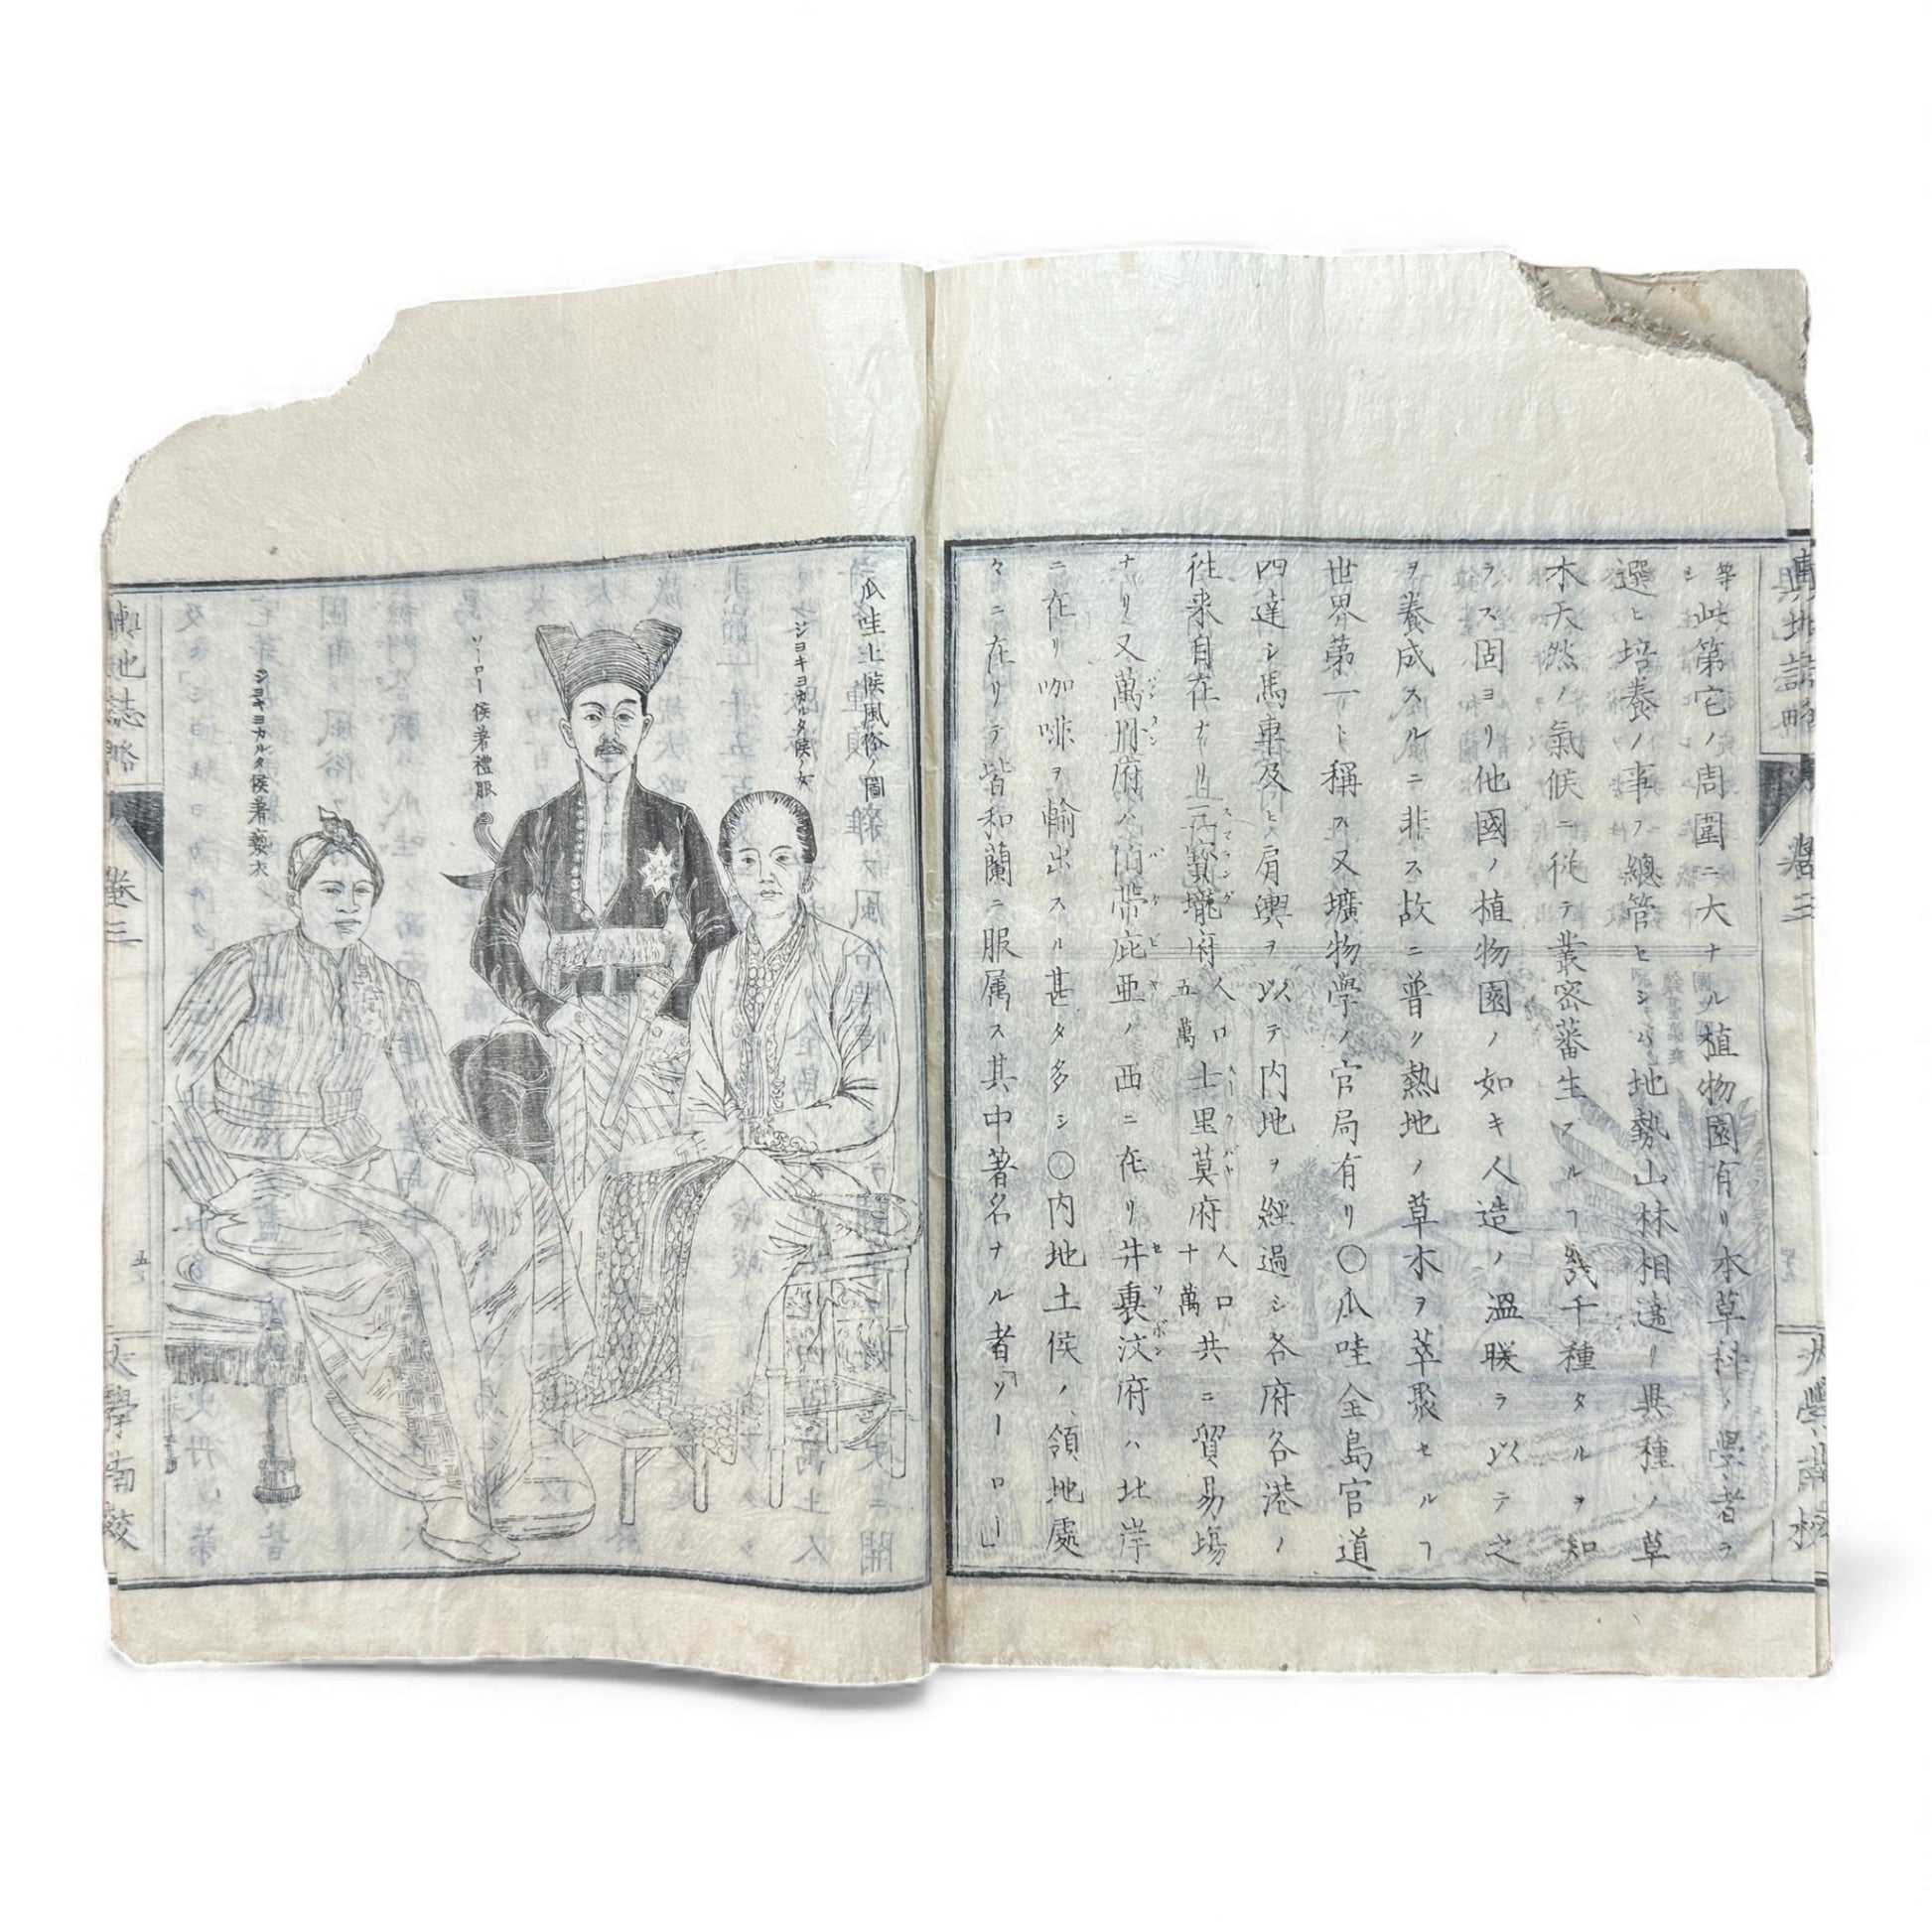 輿地誌略
卷三
大學南校
等此第宅ノ周圍ニ大ナル植物園有リ本草科ノ學者ヲ
選ヒ培養ノ事ヲ總管セシム地勢山林相違リ異種ノ草
木天然ノ氣候ニ從テ叢密蕃生スルヿ幾千種タルヲ知
ラス固ヨリ他國ノ植物園ノ如キ人造ノ溫暖ヲ以テ之
ヲ養成スルニ非ス故ニ普ク熱地ノ草木ヲ萃聚セルヿ
世界第一ト稱ス又壙物學ノ官局有リ〇瓜哇全島官道
四達シ馬車及ヒ肩輿ヲ以テ内地ヲ經過シ各府各港ノ
徃来自在ナリ三寳壠府人口五萬士里莫府人口十萬共ニ貿易塲
ナリ又萬丹府ハ泊帶庇亜ノ西ニ在リ井裏汶府ハ北岸
ニ在リ咖啡ヲ輸出スル甚タ多シ〇内地土侯ノ領地處
々ニ在リテ皆和蘭ニ服属ス其中著名ナル者「ソーロー」
瓜哇土候風俗ノ圖
ジヨキヨカルタ侯ノ女
ソーロー侯著禮服
ジヨキヨカルタ侯著褻衣
輿地誌略
卷三
五
大學南校